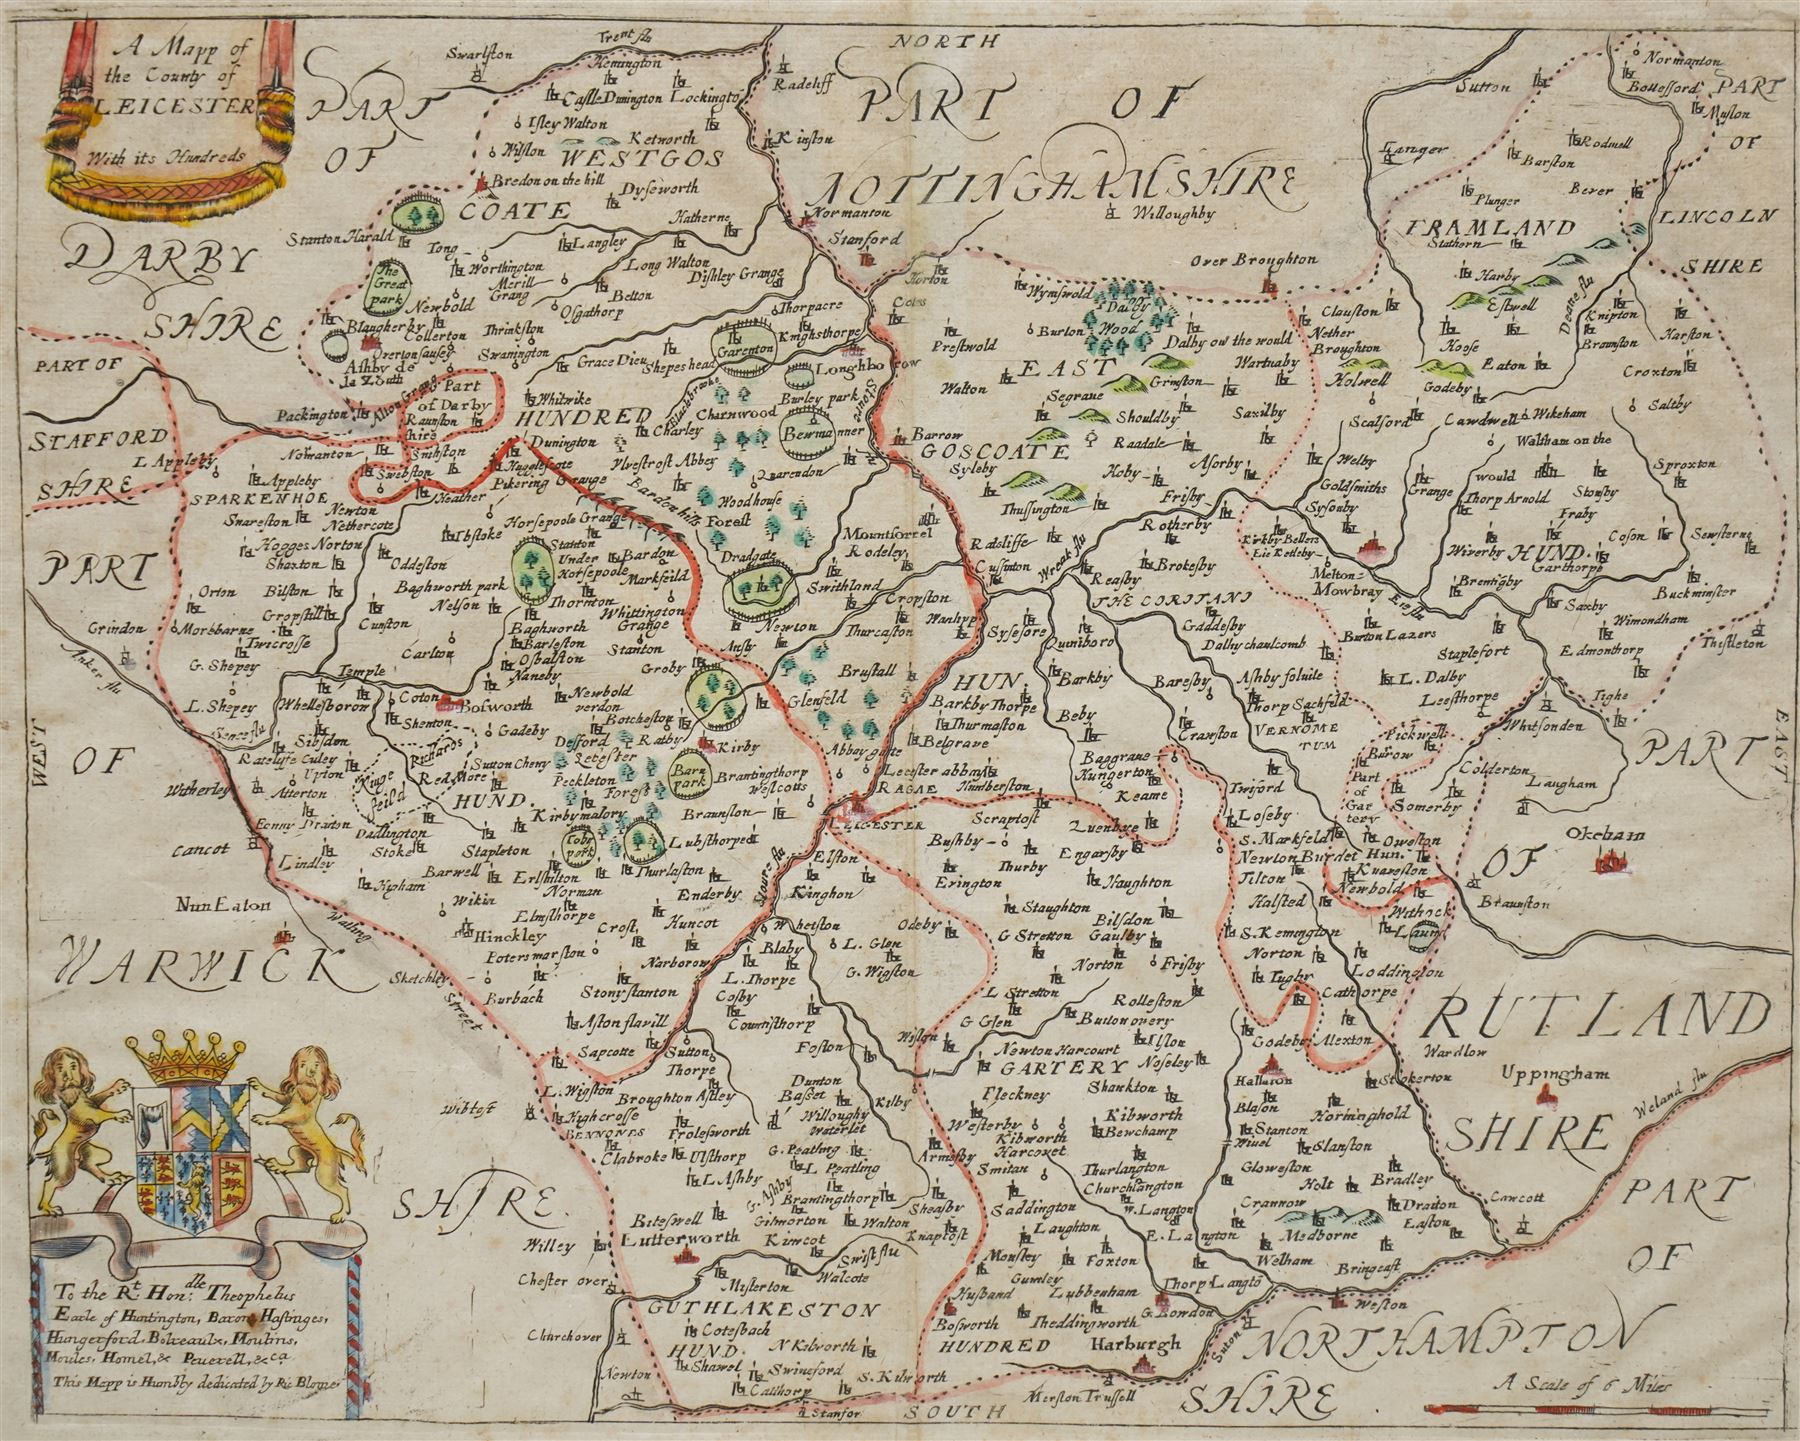 A Mapp of
the County of
LEICESTER
With its Hundreds
NORTH
PART
OF
DARBY
SHIRE
PART OF
NOTTINGHAMSHIRE
PART
OF
LINCOLN
SHIRE
Trent flu
Swarlston
Hemington
Radcliff
Castle Dunington
Lockingto
Isley Walton
Kinston
Wilston
Ketworth
WESTGOS
COATE
Bredon on the hill
Dyseworth
Stanton Harald
Hatherne
Normanton
Stanford
Willoughby
Tong
Langley
Worthington
Long Walton
Dishley Grange
The
Great
park
Newbold
Merill
Grang
Belton
Osgathorp
Thorpacre
Blaugherby
Collerton
Thrinkston
Garenton
Knighsthorpe
Overtonsausey
Swanington
Grace Dieu
Shepeshead
Ashby de
la Zouth
Loughborow
Sutton
Normanton
Bottesford
Muston
Langer
Rodmell
Barston
Bever
Plunger
FRAMLAND
Stathern
Over Broughton
Harby
Estwell
Deane flu
Horton
Cotes
Wymswold
Dalby
Wood
Burton
Clauston
Knipton
Harston
Prestwold
Dalby ow the would
Nether
Broughton
Hoose
Branston
EAST
Wartnaby
Holwell
Eaton
Croxton
Walton
Grimston
Godeby
Segrave
Shouldby
Saxilby
Scalford
Cawdwell
Wikeham
Saltby
PART OF
STAFFORD
SHIRE
Packington
Alton Grang
Part
of Darby
shire
Raunston
Whitwike
HUNDRED
Blackbrooke
Charnwood
Burley park
Bewmanner
Stoure
Charley
Barrow
GOSCOATE
Raadale
Waltham on the
would
L. Appleby
Normanton
Smihston
Dunington
Hugglescote
Ulvestrost Abbey
Quarendon
Syleby
Hoby
Asorby
Welby
Sproxton
Appleby
Swebston
Pikering Grange
SPARKENHOE
Heather
Woodhouse
Goldsmiths
Grange
Thorp Arnold
Stonsby
Snareston
Newton
Nethercote
Horsepoole Grange
Bardon hills
Forest
Thussington
Frisby
Sysonby
Fraby
Ibstoke
Mountsorrel
Rotherby
Kirkby Bellers
Coson
Sewsterne
Hogges Norton
Stanton
Under
Horsepoole
Bardon
Dradgate
Rodeley
Ratcliffe
Wreak flu
Eie Ketleby
Wiverby
HUND.
Garthorpe
Shaxton
Oddeston
Markfeild
Cussinton
Reasby
Brokesby
Melton
Mowbray
Brentigby
Orton
Bilston
Baghworth park
Swithland
Eie flu
Buckminster
Nelson
Thornton
Whittington
Grange
Cropston
THE CORITANI
Saxby
Gropshill
Cunston
Newton
Thurcaston
Wanlyp
Syseforе
Gaddesby
Wimondham
Grindon
Morebarne
Baghworth
Burton Lazers
Thistleton
Twicrosse
Carlton
Barleston
Stanton
Ansty
Quiniboro
Dalby chaulcomb
Staplefort
Edmonthorp
Anker flu
G. Shepey
Osbalston
Temple
Naneby
Groby
Brustall
Barkby
Baresby
Ashby foluile
L. Dalby
L. Shepey
Whellesborow
Coton
Bosworth
Newbold
verdon
Glenfeld
HUN.
Barkby Thorpe
Thorp Sachfeld
Leesthorpe
Tighe
Shenton
Botcheston
Thurmaston
Beby
Crawston
VERNOME
TUM
Whitsonden
Sence flu
Sibsdon
Gadeby
Desford
Ratby
Kirby
Abbay gate
Belgrave
Pickwell
Ratclyfe Culey
Sutton Cheny
Leiester
Forest
Baggrave
Burow
Upton
Kinge
Richards
feild
Red More
Peckleton
Barn
park
Brantingthorp
Westcotts
Leester abbay
Hungerton
Colderton
Witherley
Atterton
HUND.
RAGAE
Humberston
Keame
Twiford
Part
of
Gar
tery
Somerby
Laugham
Fenny Draiton
Kirbymalory
Braunston
LEICESTER
Scraptoft
Loseby
Cancot
Dadlington
Stoke
Tobt
port
Lubsthorpe
Quenbye
S. Markfeld
Oweston
Okeham
Lindley
Stapleton
Bushby
Engarsby
Newton Burdet
Hun.
Higham
Barwell
Erlshilton
Thurlaston
Elston
Thurby
Tilton
Knareston
Newbold
Norman
Enderby
Kinghon
Erington
Haughton
Halsted
Braunston
NunEaton
Wikin
Elmsthorpe
Stoure flu
Staughton
Withock
Watling
Hinckley
Crost
Huncot
Whetston
Odeby
Bilsdon
S. Kemington
Laun
Potersmarston
Blaby
L. Glen
G Stretton
Gaulby
Norton
Sketchley
Street
Narborow
L. Thorpe
G. Wigston
Norton
Frisby
Tugby
Loddington
Burbach
Stony stanton
Cosby
L Stretton
Rolleston
Cathorpe
Aston flavill
Countisthorp
G Glen
Burton overy
Sapcotte
Sutton
Foston
Wiston
Newton Harcourt
Ilston
Godeby
Alexton
Wardlow
L. Wigston
Thorpe
GARTERY
Noseley
Halluton
Stokerton
Uppingham
Broughton Astley
Dunton
Basset
Fleckney
Shankton
Weland flu
Wibtoft
Highcrosse
BENNONES
Willoughy
Waterlet
Kilby
Kibworth
Bewchamp
Blason
Horninghold
Frolesworth
Westerby
Kibworth
Harcouet
Stanton
Wiuel
Slanston
Clabroke
Ulsthorp
G. Peatling
Armesby
Smitan
Thurlangton
Glowston
L Ashby
L Peatling
Churchlangton
Holt
Bradley
G. Ashby
Brantingthorp
Sheasby
Saddington
W. Langton
Crannow
Draiton
Cawcott
Biteswell
Gilmorton
Walton
Knaptoft
Laughton
E. Langton
Medborne
Easton
Willey
Lutterworth
Kimcot
Foxton
Welham
Swift flu
Mowsley
Bringeast
Chester over
Misterton
Walcote
Gumley
Thorp Langto
GUTHLAKESTON
HUND.
Husband
Bosworth
Lubbenham
G. Bowdon
Weston
Churchover
Cotesbach
N Kilworth
Theddingworth
HUNDRED
Harburgh
Suton
Shawel
Swineford
S. Kilworth
Newton
Catthorp
Stanfor
Merston Trussell
SOUTH
WEST
EAST
PART
OF
WARWICK
SHIRE
PART
OF
RUTLAND
SHIRE
PART
OF
NORTHAMPTON
SHIRE
To the Rt Honble: Theophelus
Earle of Huntington, Baron Hastinges,
Hungerford, Botreaulx, Moulins,
Moules, Homel, & Peuerell, &ca
This Mapp is Humbly dedicated by Ric Blome
A Scale of 6 Miles